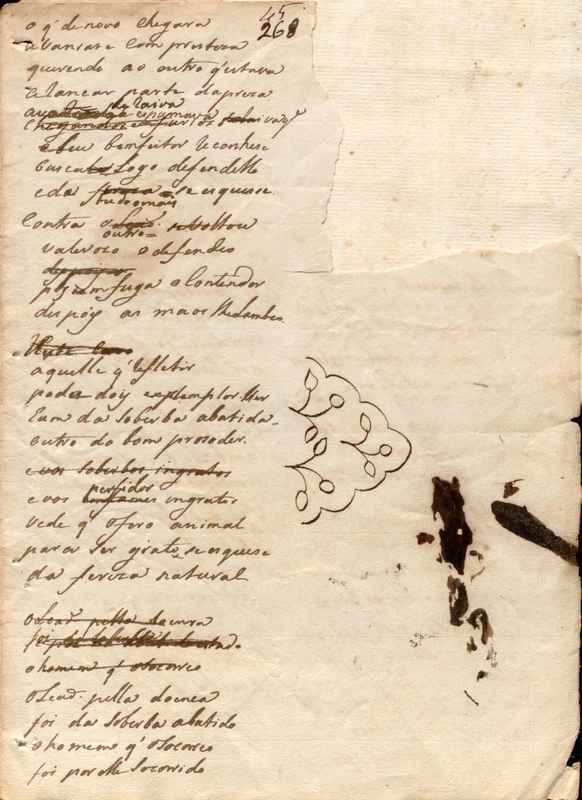 45
268
o q' de novo chegara
avansase com presteza
querendo ao outro q' estava
alansar parte da preza
de raiva
espumava
o seu bemfeitor reconhese
busca logo defendello
e da se esquese
tudo o mais
Contra o voltou
outro
valerozo o defendeo
depois
pos em fuga o Contendor
despoys as maos lhe lambeo.
aquelle q' reflectir
pode doys exemplos ter
hum da soberba abatida
outro do bom proseder.
e vos soberbos ingratos
perfidos
e vos infames ingratos
vede q' o fero animal
para ser grato, se esquese
da fereza natural
o Leaõ pella doensa
foi
o homem q' o socorreo
o Leaõ pella doensa
foi da soberba abatido
o homem q' o socorreo
foi por elle socorrido